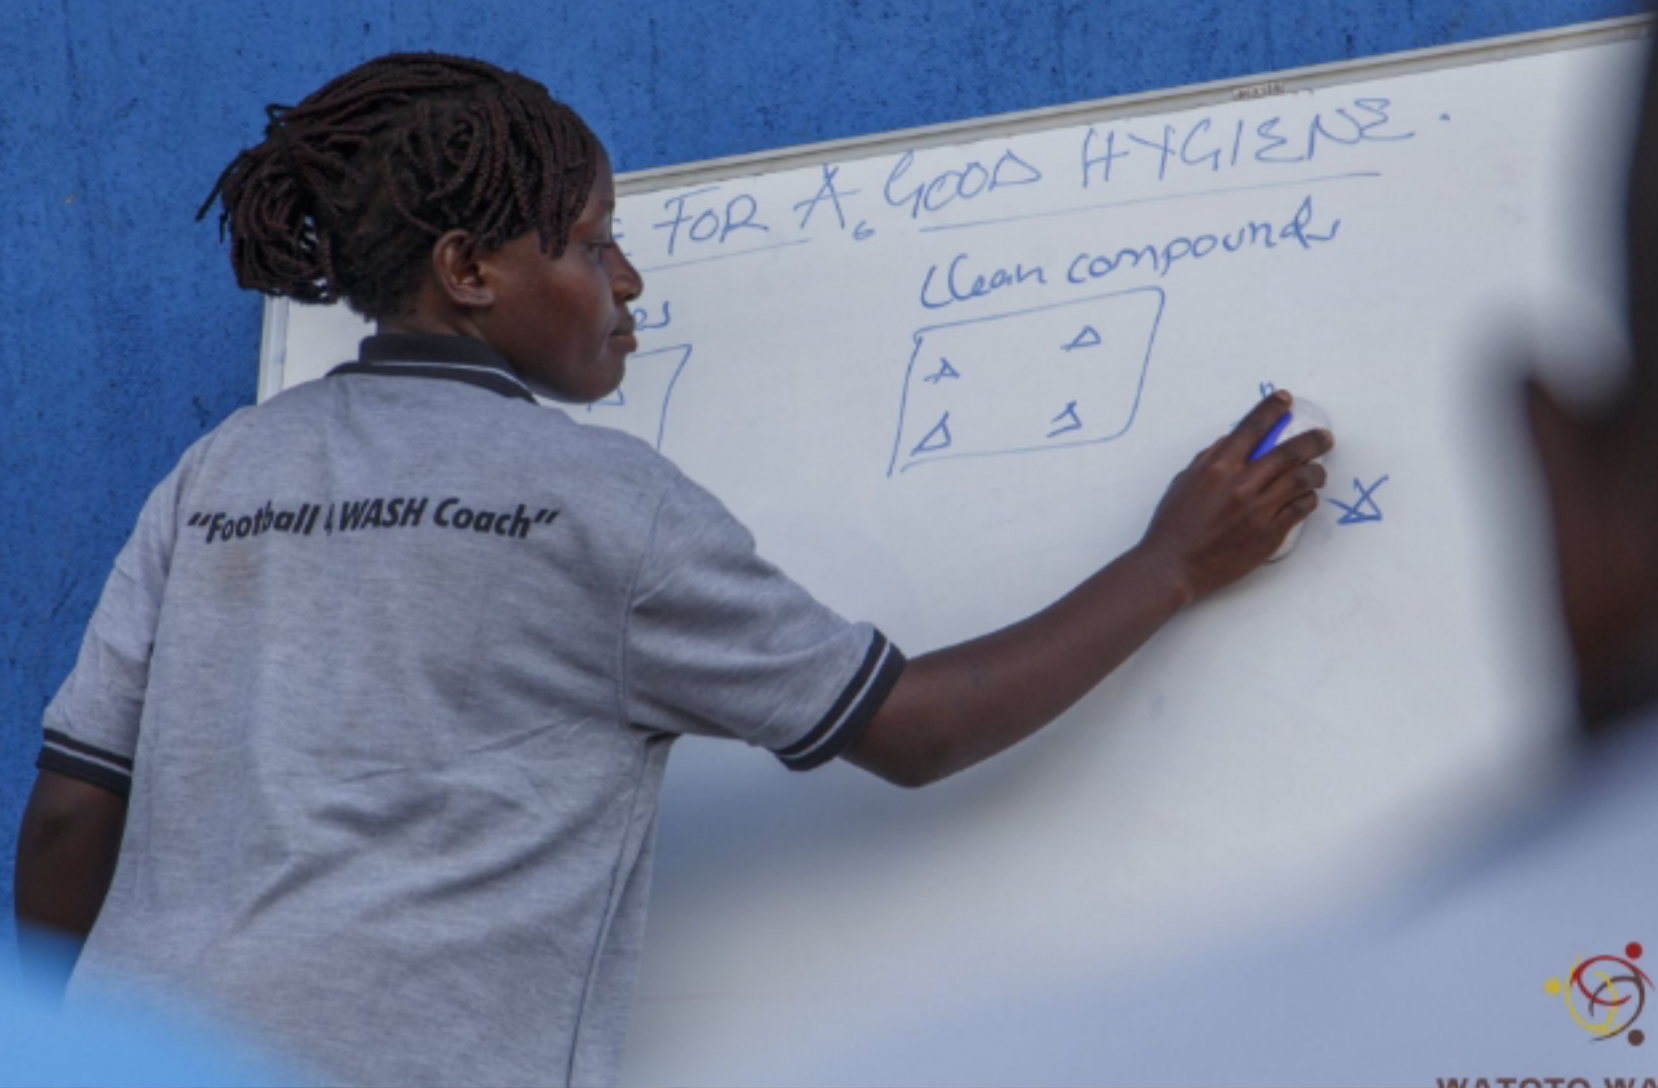 FOR A GOOD HYGIENE.
Clean compounds
"Football 4 WASH Coach"
WATOTO WA